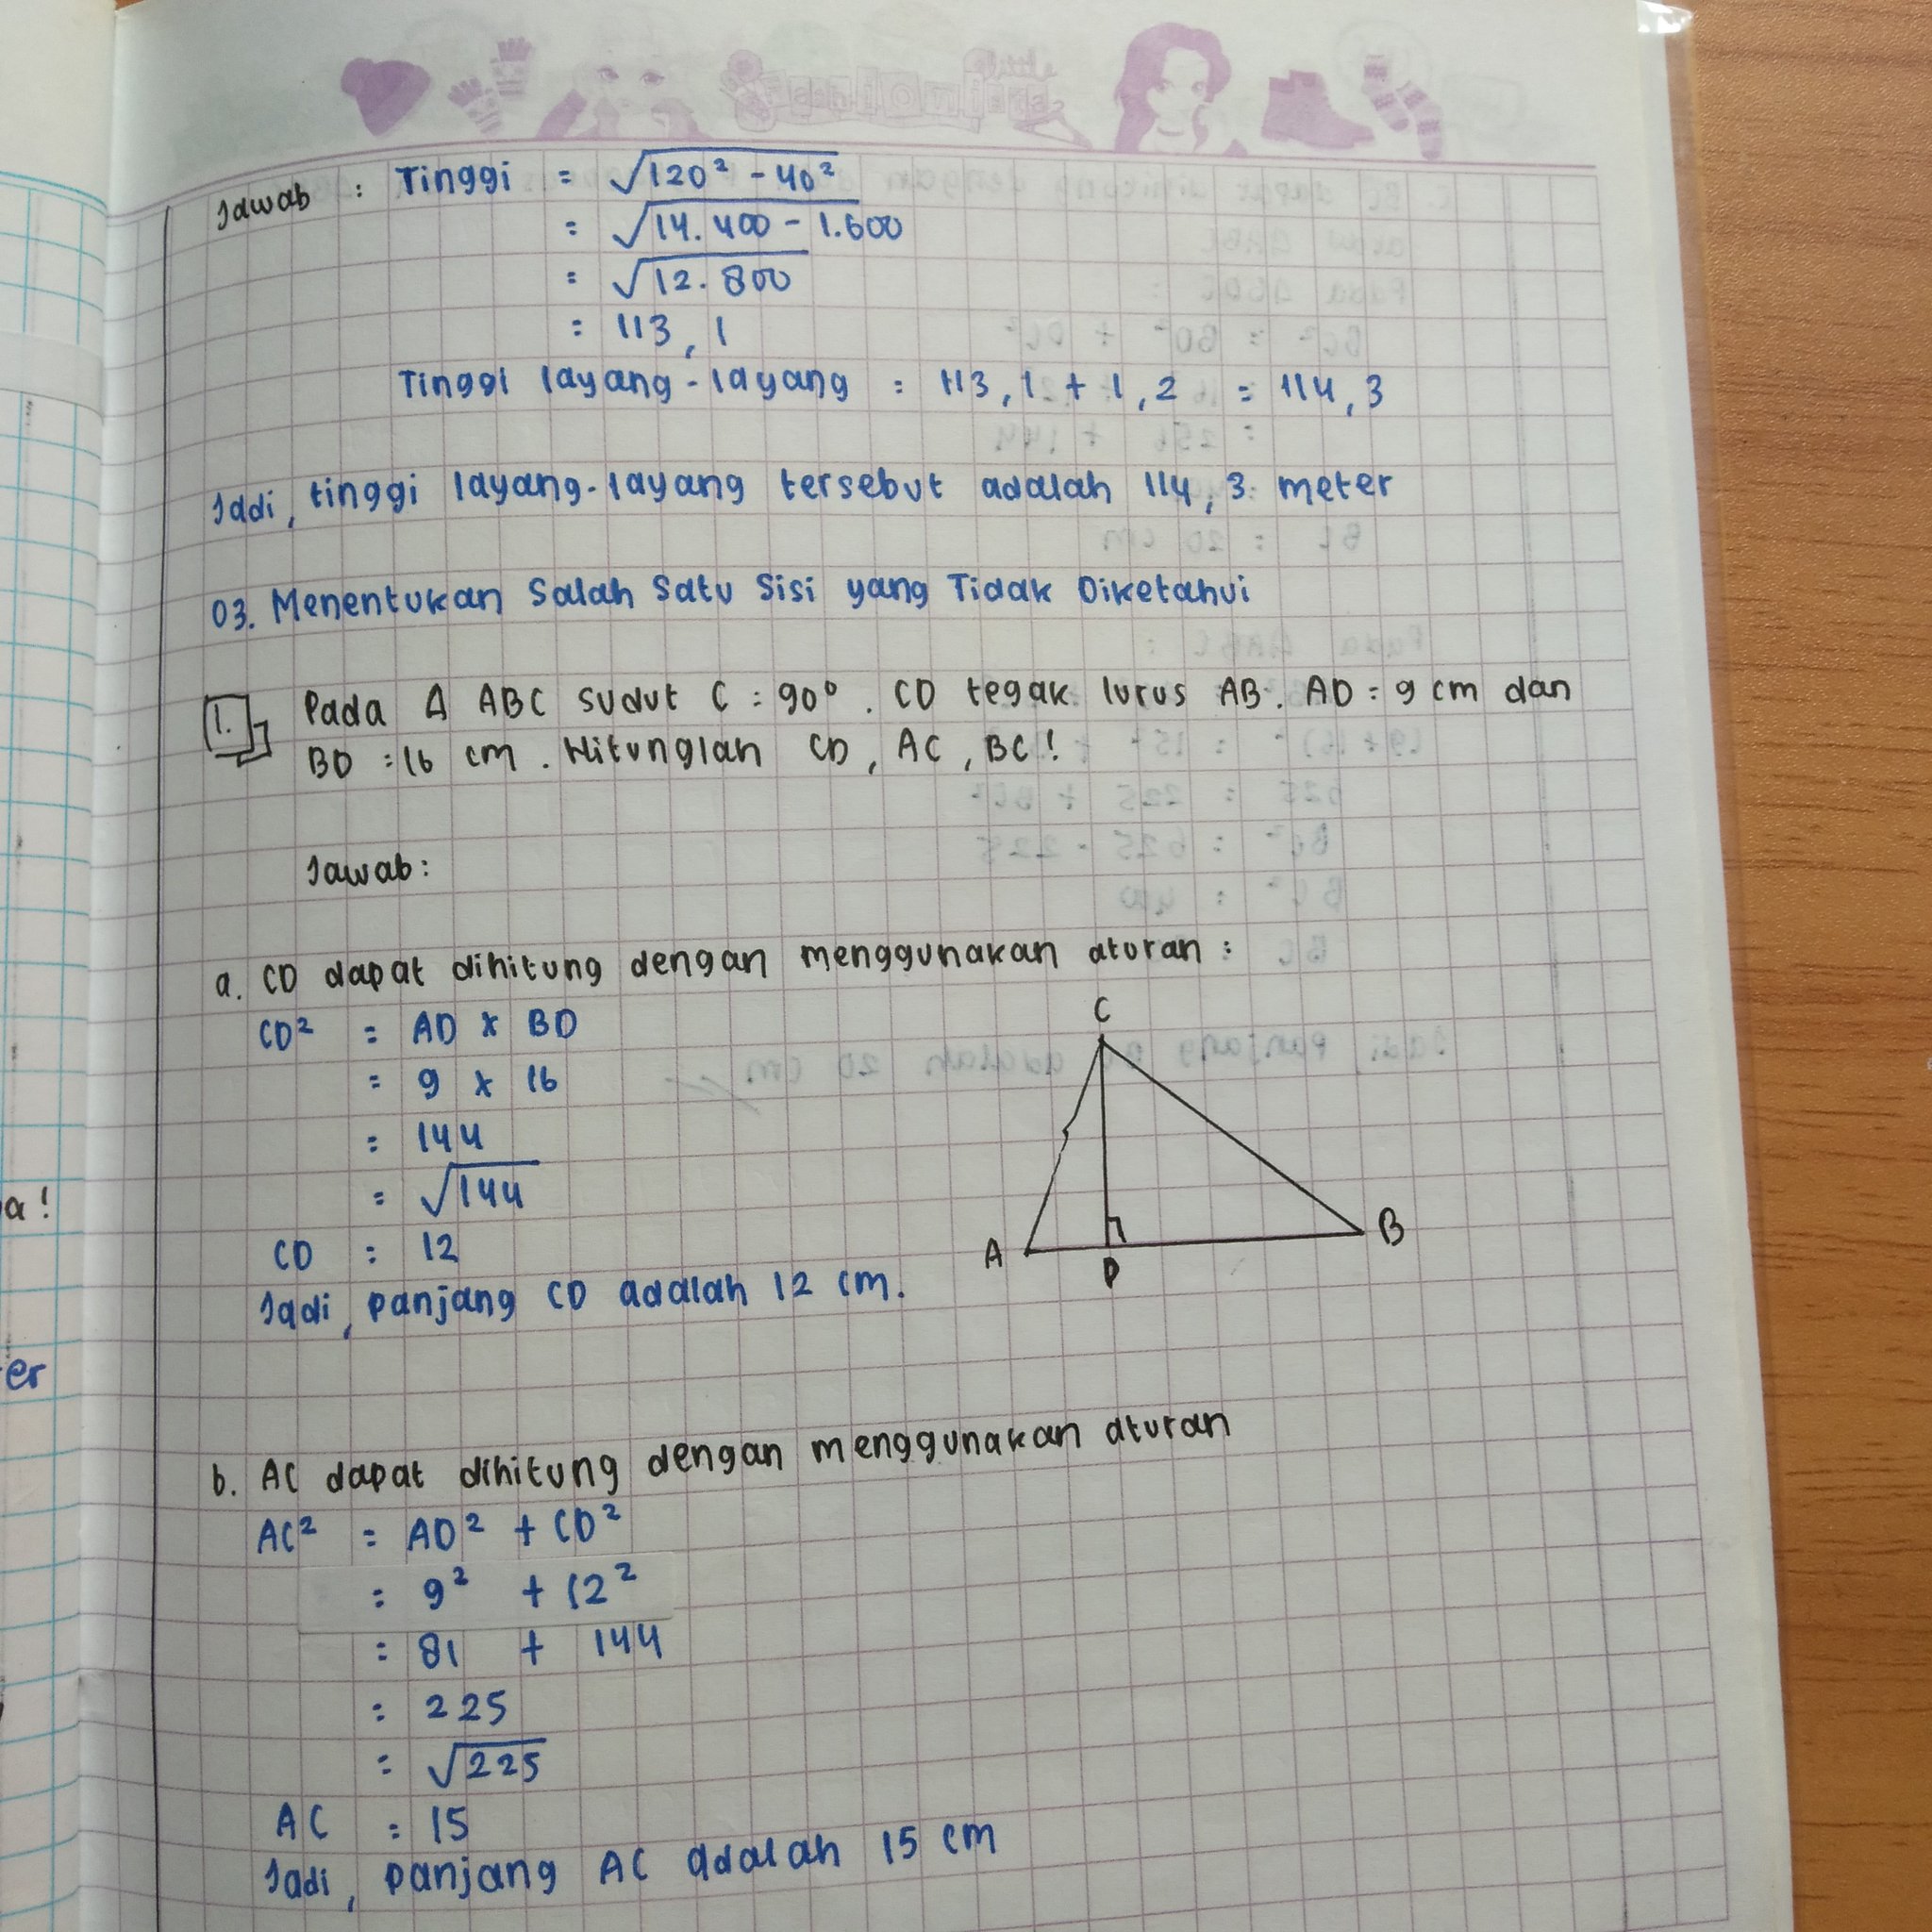 Jawab : Tinggi = √120² - 40²
= √14.400 - 1.600
= √12.800
= 113,1
Tinggi layang-layang : 113,1 + 1,2 = 114,3
Jadi, tinggi layang-layang tersebut adalah 114,3 meter
03. Menentukan Salah Satu Sisi yang Tidak Diketahui
1. Pada Δ ABC sudut C = 90°. CD tegak lurus AB. AD = 9 cm dan
BD = 16 cm. Hitunglah CD, AC, BC!
Jawab:
a. CD dapat dihitung dengan menggunakan aturan :
CD² = AD x BD
= 9 x 16
= 144
= √144
CD = 12
Jadi, panjang CD adalah 12 cm.
C
A
D
B
b. AC dapat dihitung dengan menggunakan aturan
AC² = AD² + CD²
= 9² + 12²
= 81 + 144
= 225
= √225
AC = 15
Jadi, panjang AC adalah 15 cm
a!
er